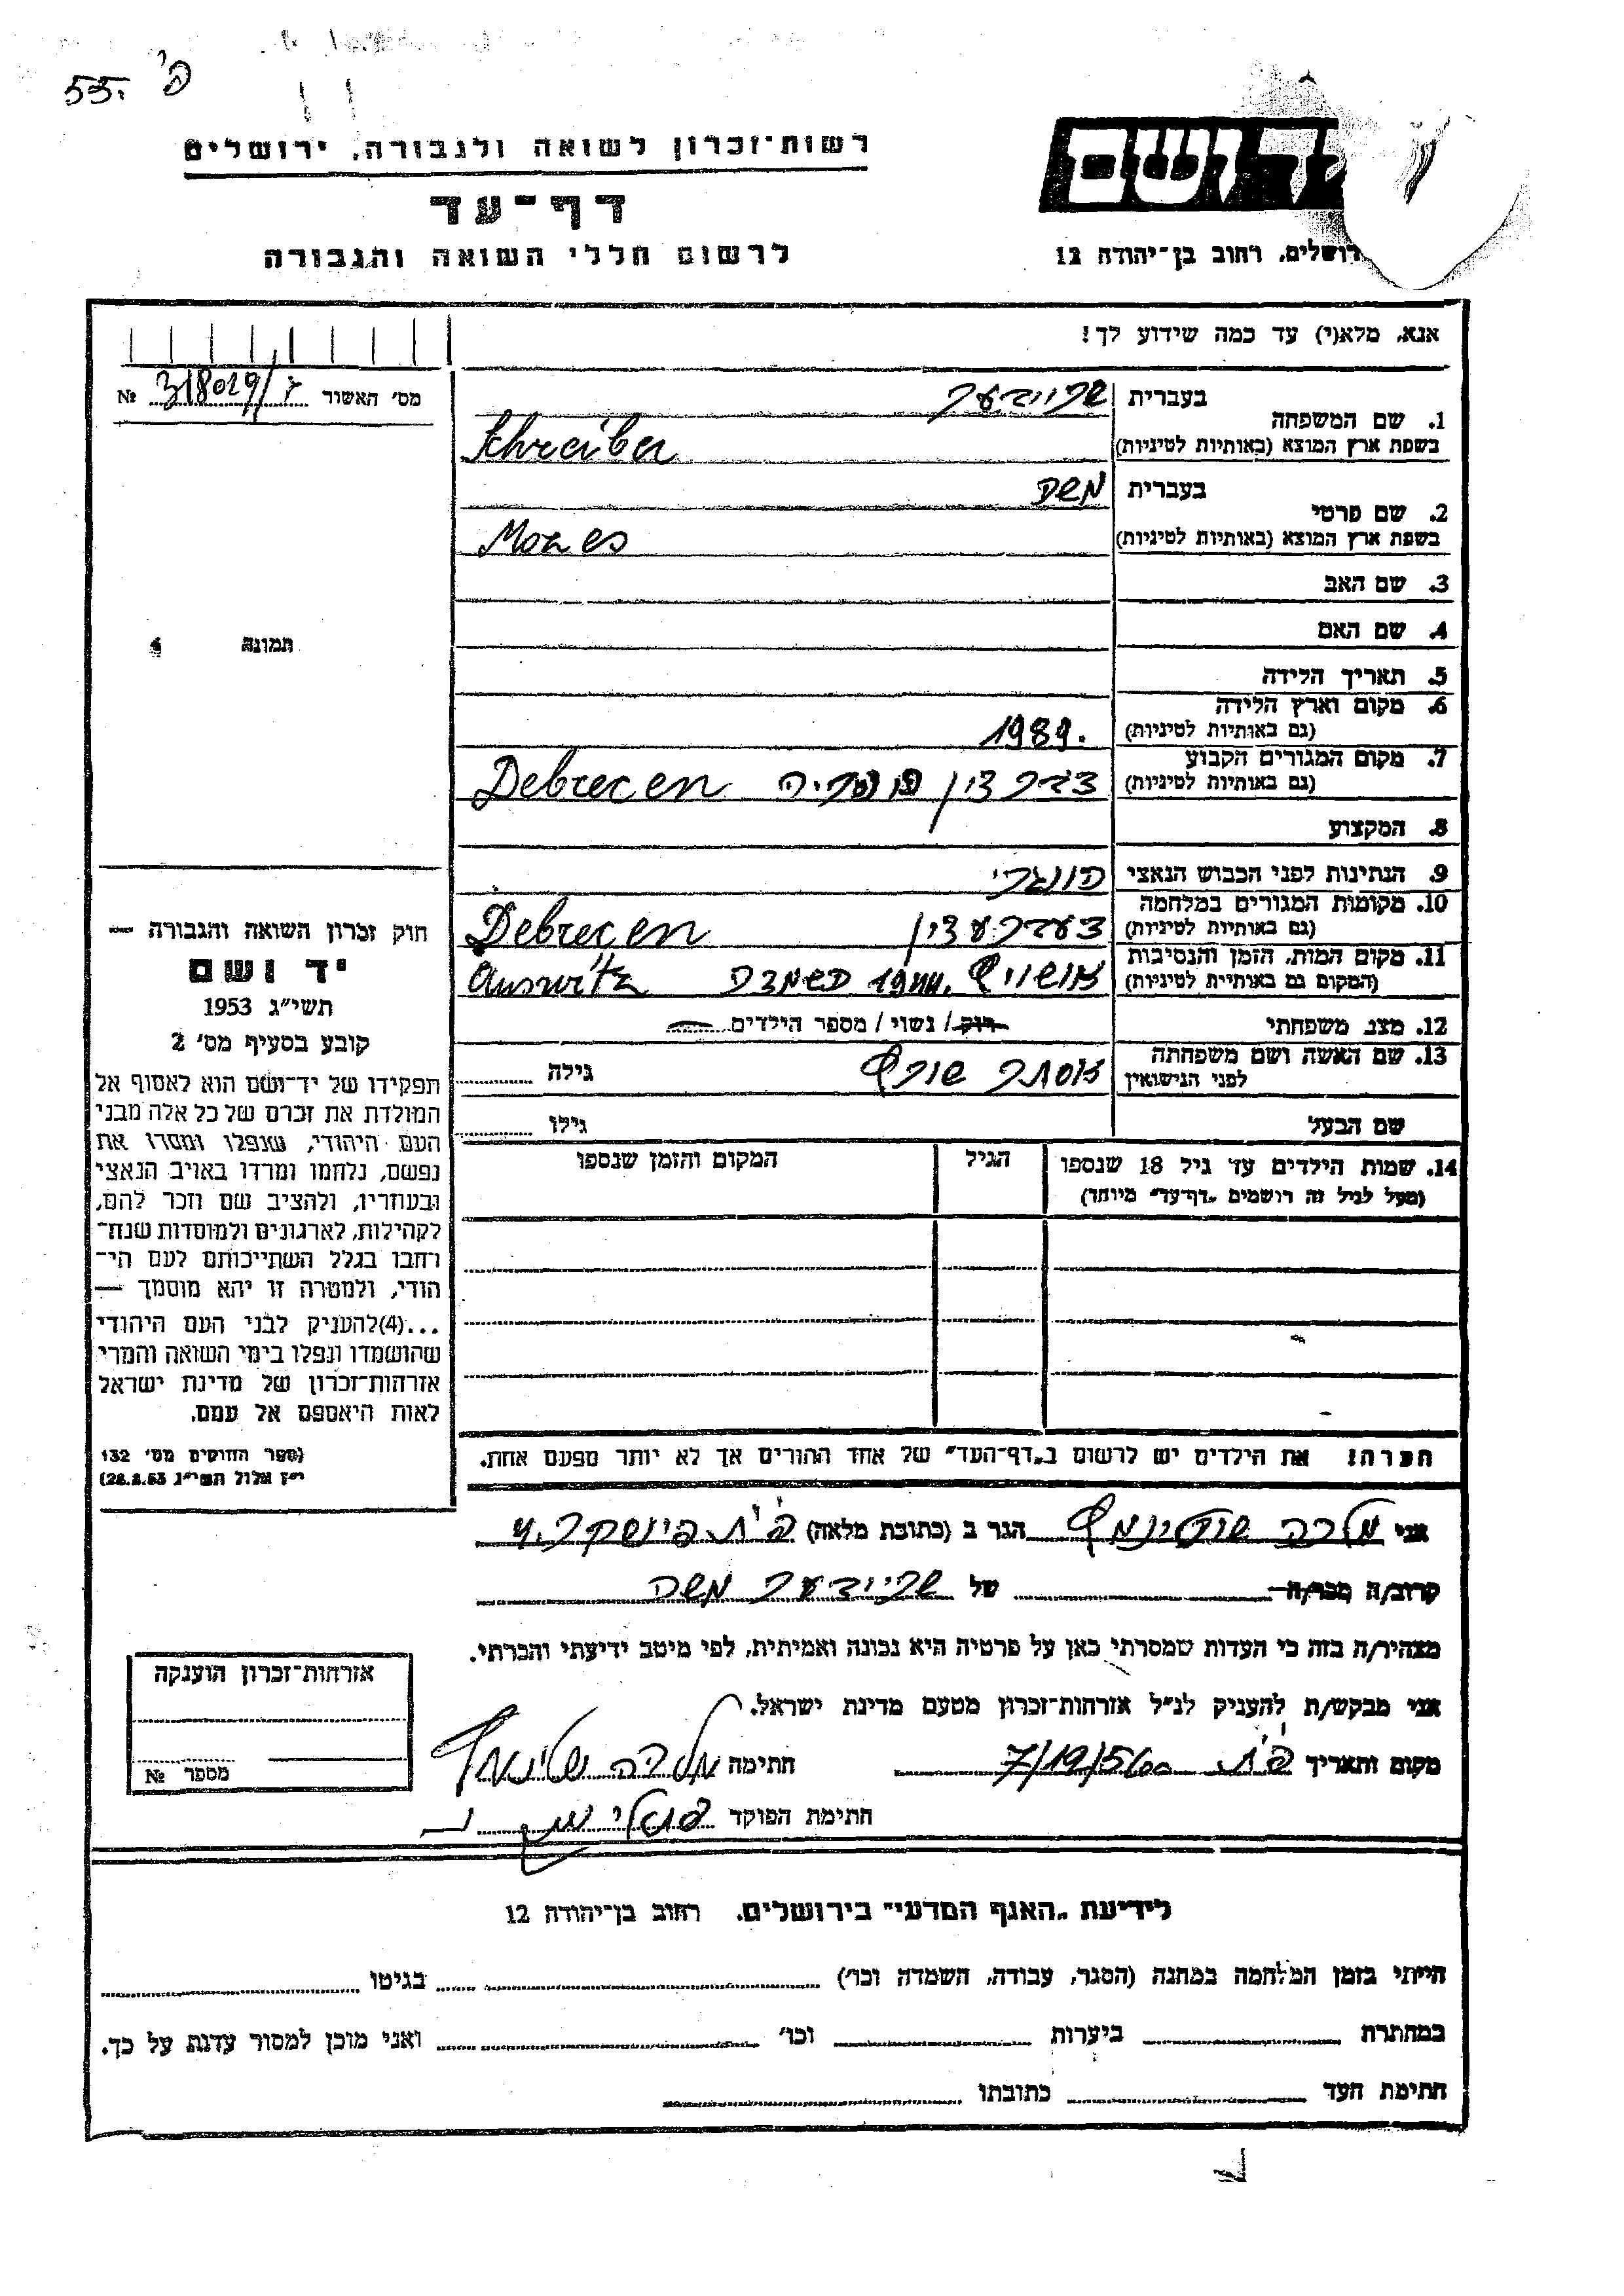 פ' 55.
רשות־זכרון לשואה ולגבורה, ירושלים
דף־עד
לרשום חללי השואה והגבורה
ושם
רושלים, רחוב בן־יהודה 12
אנא, מלא(י) עד כמה שידוע לך!
מס' האשור 318029/ №
1. שם המשפחה
בעברית שרייבער
בשפת ארץ המוצא (באותיות לטיניות) Schreiber
2. שם פרטי
בעברית משה
בשפת ארץ המוצא (באותיות לטיניות) Mozes
3. שם האב
4. שם האם
5. תאריך הלידה
6. מקום וארץ הלידה
(גם באותיות לטיניות) 1989.
7. מקום המגורים הקבוע
(גם באותיות לטיניות) דברצין Debrecen
8. המקצוע
9. הנתינות לפני הכבוש הנאצי הונגרי
10. מקומות המגורים במלחמה
(גם באותיות לטיניות) דעברעצין Debrecen
11. מקום המות, הזמן והנסיבות
(המקום גם באותיית לטיניות) אושוויץ 1944. השמדה Auswitz
12. מצב משפחתי רוק / נשוי / מספר הילדים
13. שם האשה ושם משפחתה
לפני הנישואין אסתר שורץ גילה
שם הבעל גילו
14. שמות הילדים עד גיל 18 שנספו הגיל המקום והזמן שנספו
(מעל לגיל זה רושמים "דף־עד" מיוחד)
הערה: את הילדים יש לרשום ב"דף־העד" של אחד ההורים אך לא יותר מפעם אחת.
תמונה
חוק זכרון השואה והגבורה —
יד ושם
תשי"ג 1953
קובע בסעיף מס' 2
תפקידו של יד־ושם הוא לאסוף אל
המולדת את זכרם של כל אלה מבני
העם היהודי, שנפלו ומסרו את
נפשם, נלחמו ומרדו באויב הנאצי
ובעוזריו, ולהציב שם וזכר להם,
לקהילות, לארגונים ולמוסדות שנח־
רחבו בגלל השתייכותם לעם הי־
הודי, ולמטרה זו יהא מוסמך —
...(4)להעניק לבני העם היהודי
שהושמדו ונפלו בימי השואה והמרי
אזרחות־זכרון של מדינת ישראל
לאות היאספם אל עמם.
(ספר החוקים מס' 132
י"ז אלול תשי"ג 28.8.53)
אני מלכה הגר ב (כתובת מלאה) פ"ת פינסקר 4.
קרוב/ה מכר/ה של שרייבער משה
מצהיר/ה בזה כי העדות שמסרתי כאן על פרטיה היא נכונה ואמיתית, לפי מיטב ידיעתי והכרתי.
אני מבקש/ת להעניק לנ"ל אזרחות־זכרון מטעם מדינת ישראל.
מקום ותאריך פ"ת 7/19/5 חתימה מלכה
חתימת הפוקד
אזרחות־זכרון הוענקה
מספר №
לידיעת "האגף המדעי" בירושלים, רחוב בן־יהודה 12
הייתי בזמן המלחמה במחנה (הסגר, עבודה, השמדה וכו') בגיטו
במחתרת ביערות וכו' ואני מוכן למסור עדות על כך.
חתימת העד כתובתו